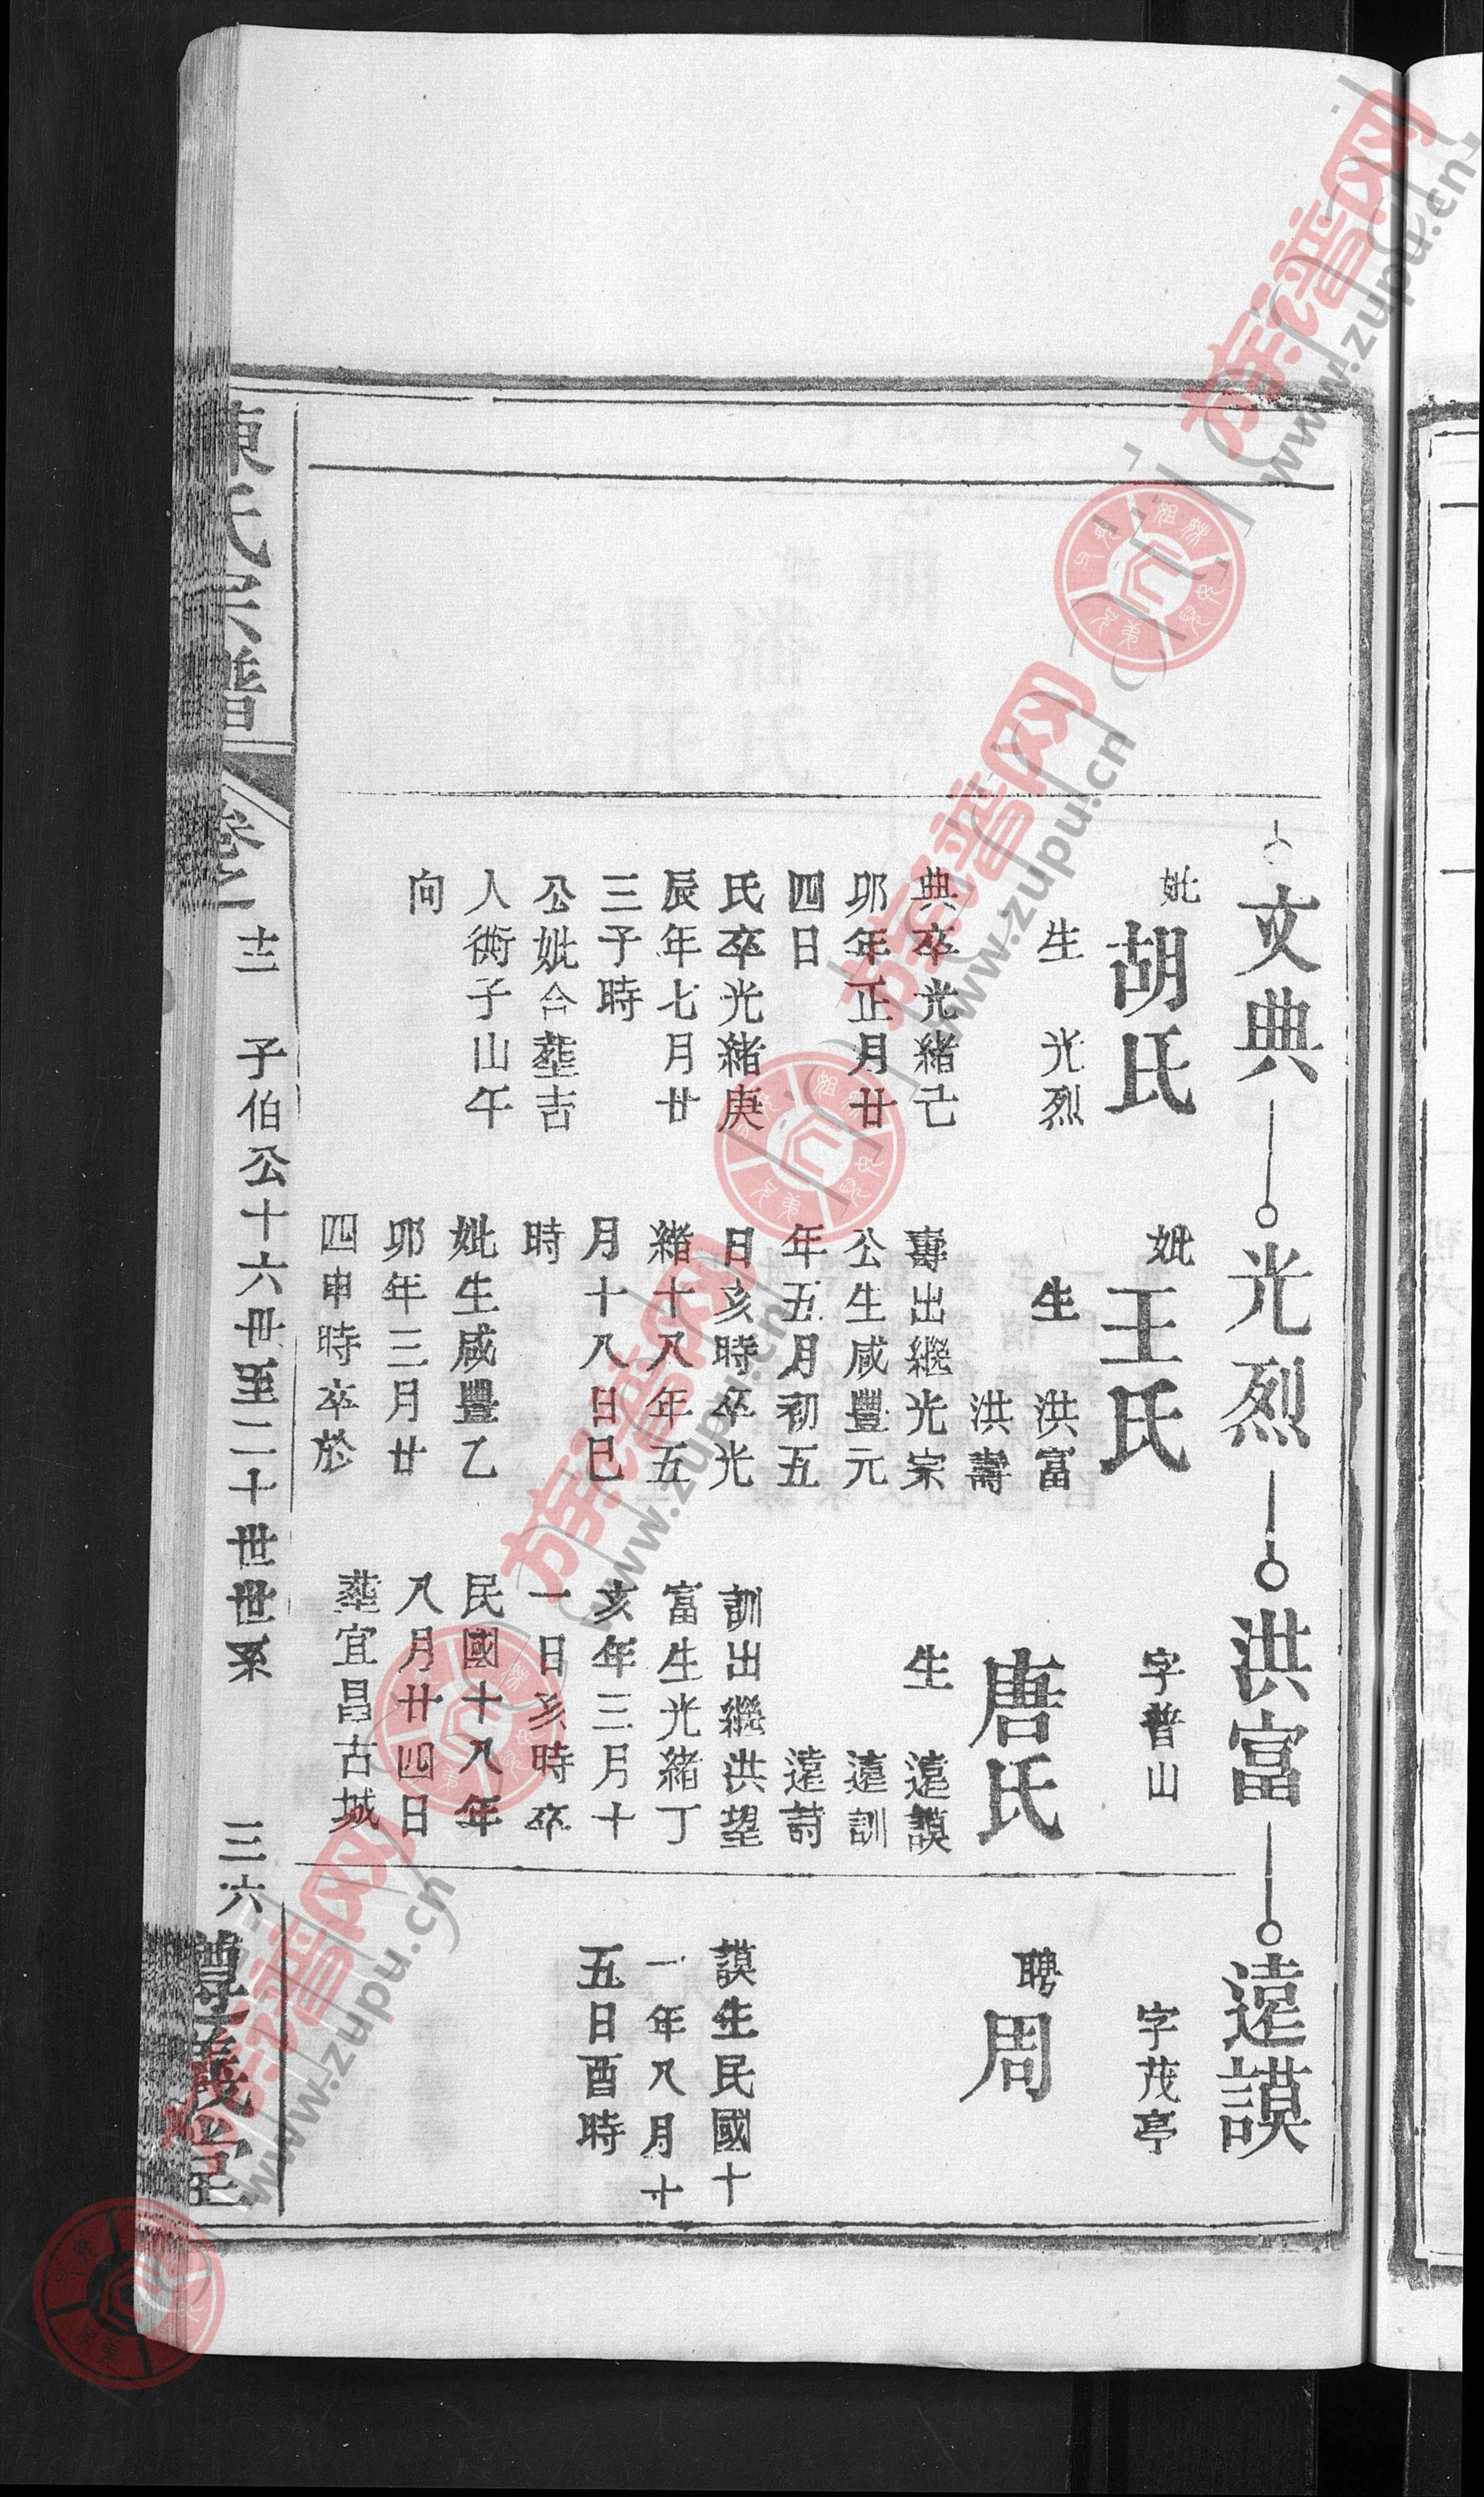 文典
妣胡氏
生 光烈
典卒光緒己
卯年正月廿
四日
氏卒光緒庚
辰年七月廿
三子時
公妣合塟吉
人衖子山午
向
光烈
妣王氏
生 洪富
洪壽
壽出繼光宗
公生咸豐元
年五月初五
日亥時卒光
緒十八年五
月十八日巳
時
妣生咸豐乙
卯年三月廿
四申時卒於
洪富
字普山
唐氏
生 遠謨
遠訓
遠詩
訓出繼洪望
富生光緒丁
亥年三月十
一日亥時卒
民國十八年
八月廿四日
塟宜昌古城
遠謨
字茂亭
聘周
謨生民國十
一年八月十
五日酉時
陳氏宗譜
卷十二 子伯公十六世至二十世世系 三六
族谱网
www.zupu.cn
族谱网
www.zupu.cn
族谱网
www.zupu.cn
族谱网
www.zupu.cn